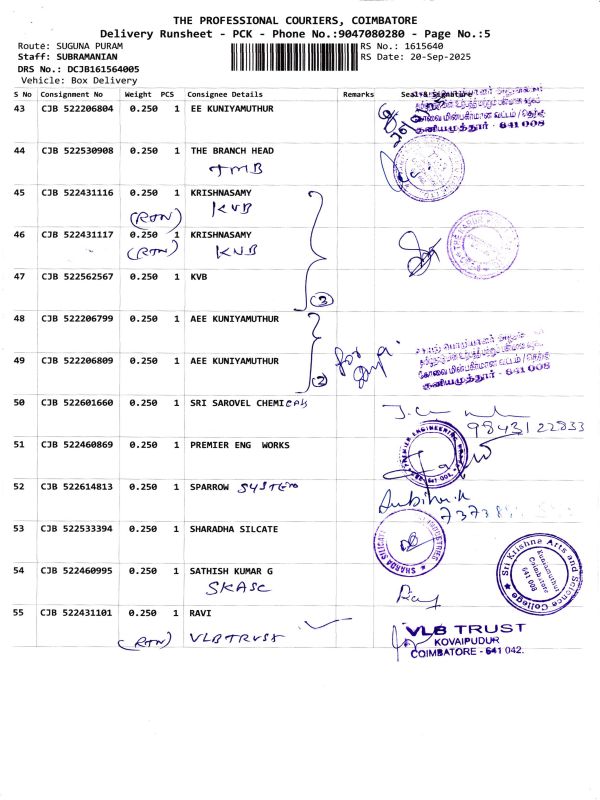 THE PROFESSIONAL COURIERS, COIMBATORE
Delivery Runsheet - PCK - Phone No.:9047080280 - Page No.:5
Route: SUGUNA PURAM
RS No.: 1615640
Staff: SUBRAMANIAN
RS Date: 20-Sep-2025
DRS No.: DCJB161564005
Vehicle: Box Delivery
S No Consignment No Weight PCS Consignee Details Remarks Seal & Signature
43 CJB 522206804 0.250 1 EE KUNIYAMUTHUR
குனியமுத்தூர் - 641 008
44 CJB 522530908 0.250 1 THE BRANCH HEAD
TMB
45 CJB 522431116 0.250 1 KRISHNASAMY
(RTN) KVB
46 CJB 522431117 0.250 1 KRISHNASAMY
(RTN) KVB
47 CJB 522562567 0.250 1 KVB
(3)
48 CJB 522206799 0.250 1 AEE KUNIYAMUTHUR
49 CJB 522206809 0.250 1 AEE KUNIYAMUTHUR
(2)
குனியமுத்தூர் - 641 008
50 CJB 522601660 0.250 1 SRI SAROVEL CHEMICALS
9843122833
51 CJB 522460869 0.250 1 PREMIER ENG WORKS
PREMIER ENGINEERING WORKS
52 CJB 522614813 0.250 1 SPARROW SYSTEM
53 CJB 522533394 0.250 1 SHARADHA SILCATE
SHARDA SILICATE INDUSTRIES
54 CJB 522460995 0.250 1 SATHISH KUMAR G
SKASC
Sri Krishna Arts and Science College
Kuniamuthur
Coimbatore
641 008
55 CJB 522431101 0.250 1 RAVI
(RTN) VLB TRUST
VLB TRUST
KOVAIPUDUR
COIMBATORE - 641 042.